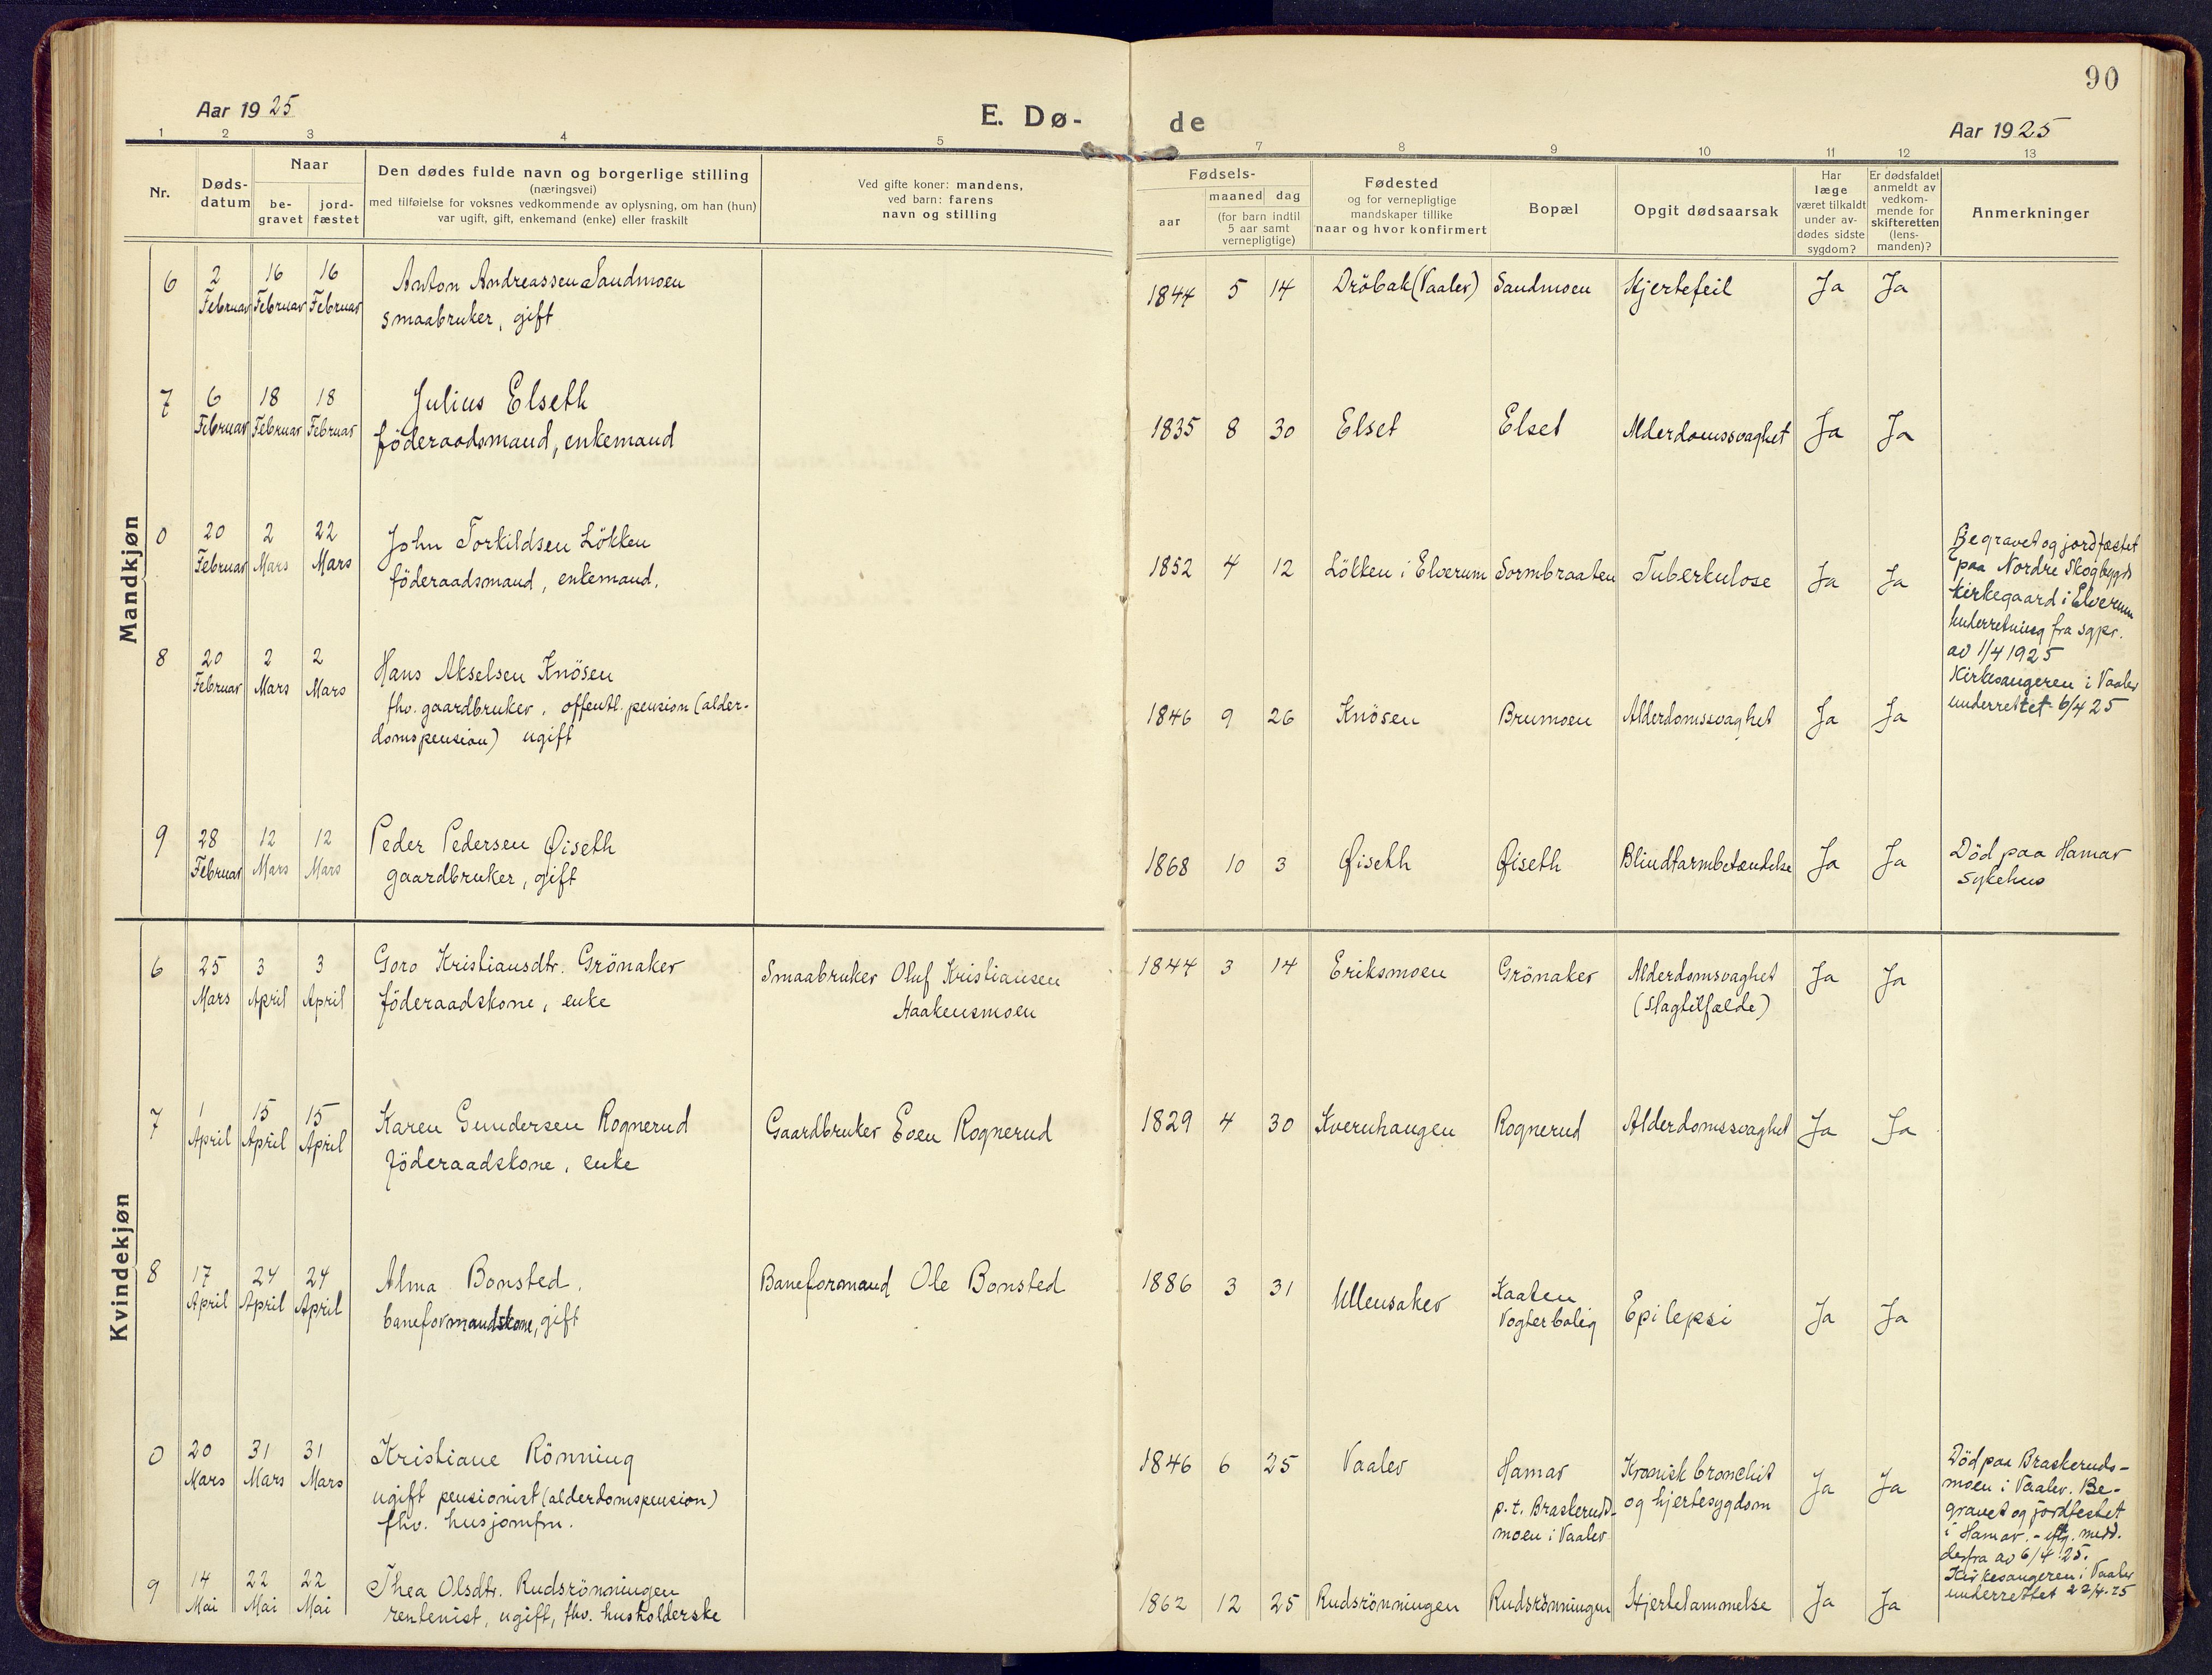 90
Aar 1925
E. Dø-
de
Aar 1925
1 2 3 4 5 7 8 9 10 11 12 13
Nr.
Døds-
datum
Naar
be-
gravet
jord-
fæstet
Den dødes fulde navn og borgerlige stilling
(næringsvei)
med tilføielse for voksnes vedkommende av oplysning, om han (hun)
var ugift, gift, enkemand (enke) eller fraskilt
Ved gifte koner: mandens,
ved barn: farens
navn og stilling
Fødsels-
aar
maaned dag
(for barn indtil
5 aar samt
vernepligtige)
Fødested
og for vernepligtige
mandskaper tillike
naar og hvor konfirmert
Bopæl
Opgit dødsaarsak
Har
læge
været tilkaldt
under av-
dødes sidste
sygdom?
Er dødsfaldet
anmeldt av
vedkom-
mende for
skifteretten
(lens-
manden)?
Anmerkninger
Mandkjøn
6 2 16 16 Anton Andreassen Sandmoen 1844 5 14 Dröbak (Vaaler) Sandmoen Hjertefeil Ja Ja
Februar Februar Februar smaabruker, gift
7 6 18 18 Julius Elseth 1835 8 30 Elset Elset Alderdomssvaghet Ja Ja
Februar Februar Februar föderaadsmand, enkemand
0 20 2 22 John Torkildsen Lökken 1852 4 12 Lökken i Elverum Sormbraaten Tuberkulose Ja Ja
Februar Mars Mars föderaadsmand, enkemand.
Begravet og jordfæstet
paa Nordre Skogbygds
kirkegaard i Elverum
underretning fra sgpr.
av 1/4 1925
Kirkesangeren i Vaaler
underrettet 6/4 25
8 20 2 2 Hans Akselsen Knösen 1846 9 26 Knösen Brumoen Alderdomssvaghet Ja Ja
Februar Mars Mars fhv. gaardbruker, offentl. pension (alder-
domspension) ugift
9 28 12 12 Peder Pedersen Øiseth 1868 10 3 Øiseth Øiseth Blindtarmbetændelse Ja Ja Död paa Hamar
Februar Mars Mars gaardbruker, gift Sykehus
Kvindekjøn
6 25 3 3 Goro Kristiansdtr. Grönaker Smaabruker Oluf Kristiansen 1844 3 14 Eriksmoen Grönaker Alderdomsvaghet Ja Ja
Mars April April föderaadskone, enke Haakensmoen (Slagtilfælde)
7 1 15 15 Karen Gundersen Rognerud Gaardbruker Even Rognerud 1829 4 30 Kvernhaugen Rognerud Alderdomssvaghet Ja Ja
April April April föderaadskone, enke
8 17 24 24 Alma Bonsted, Baneformand Ole Bonsted 1886 3 31 Ullensaker Kaaten
April April April baneformandskone, gift Vogterbolig Epilepsi Ja Ja
0 20 31 31 Kristiane Rönning 1846 6 25 Vaaler Hamar Kronisk bronchit Ja Ja
Mars Mars Mars ugift pensionist (alderdomspension) p.t. Braskeruds- og hjertesygdom
fhv. husjomfru. moen i Vaaler
Död paa Braskeruds-
moen i Vaaler. Be-
gravet og jordfestet
i Hamar. - medd.
derfra av 6/4 25.
Kirkesangeren i Vaaler
underrettet 22/4-25
9 14 22 22 Thea Olsdtr. Rudsrönningen 1862 12 25 Rudsrönningen Rudsrönningen Hjertelammelse Ja Ja
Mai Mai Mai rentenist, ugift, fhv. husholderske